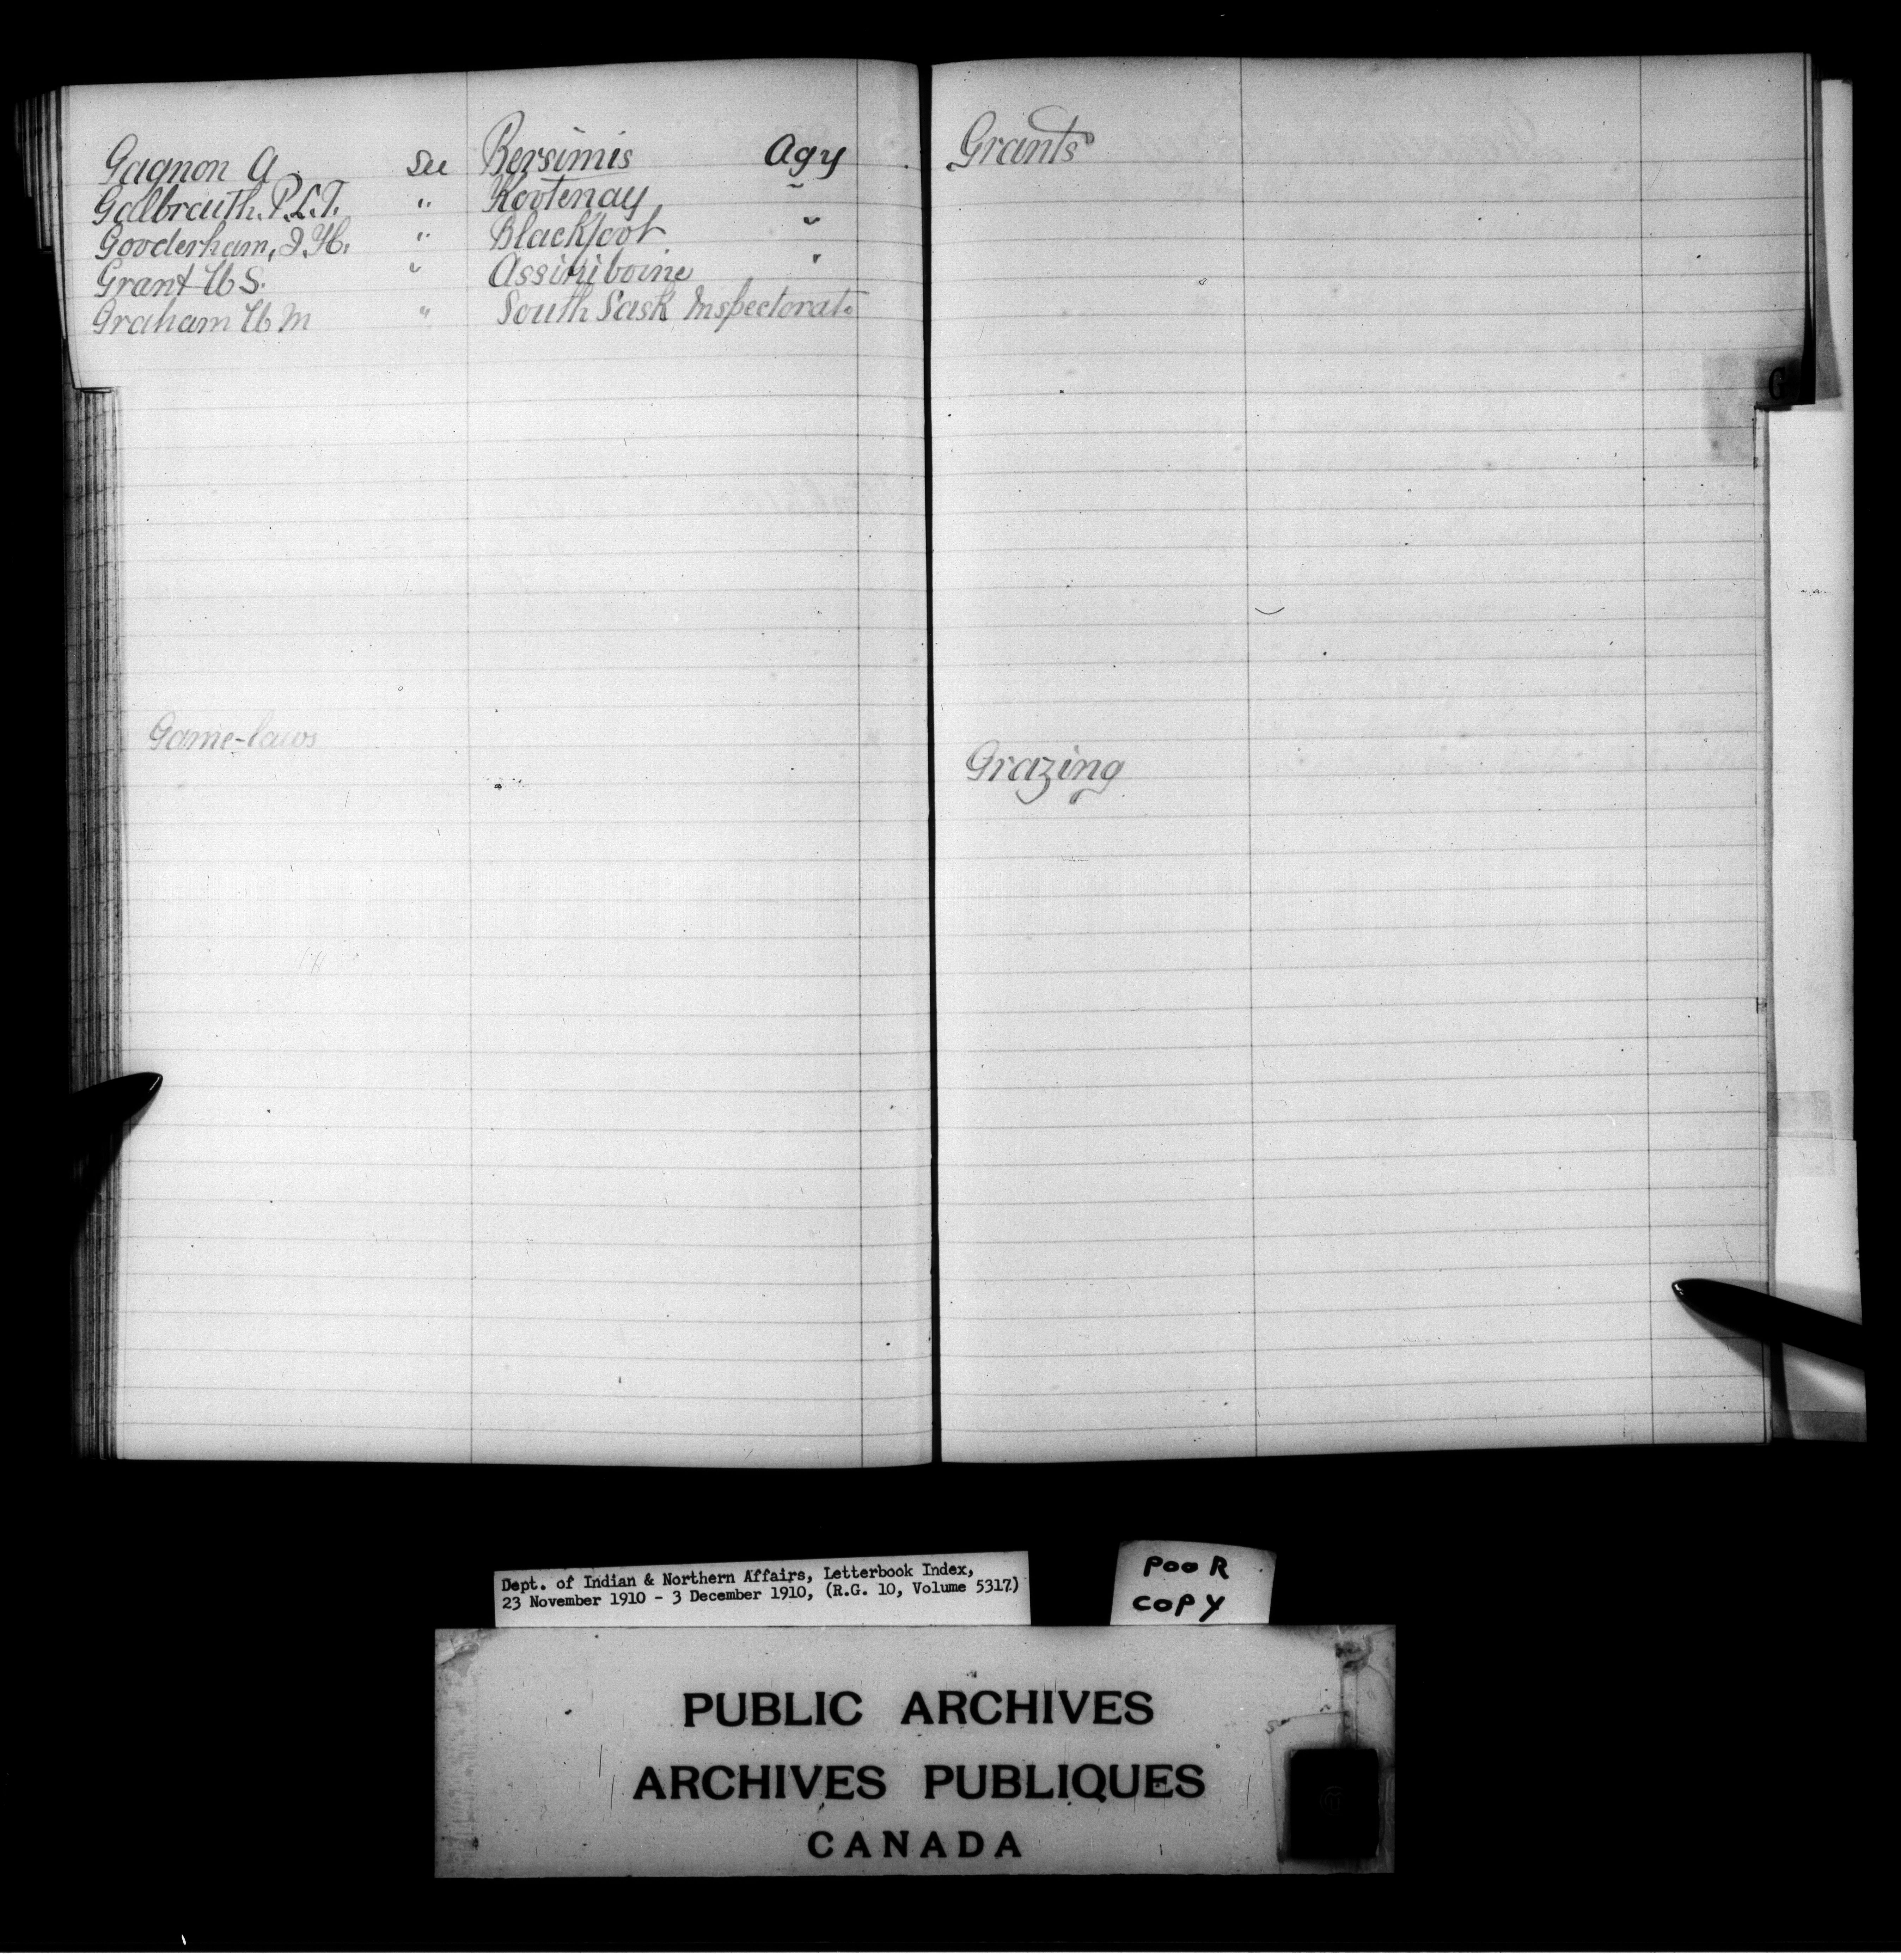 Gagnon A. See Bersimis Agy
Galbraith. R.L.T. " Kootenay "
Gooderham, J.H. " Blackfoot "
Grant W S. " Assiniboine "
Graham W M " South Sask Inspectorate
Game-laws
Grants
G
Grazing
Dept. of Indian & Northern Affairs, Letterbook Index,
23 November 1910 - 3 December 1910, (R.G. 10, Volume 5317)
POOR
COPY
PUBLIC ARCHIVES
ARCHIVES PUBLIQUES
CANADA